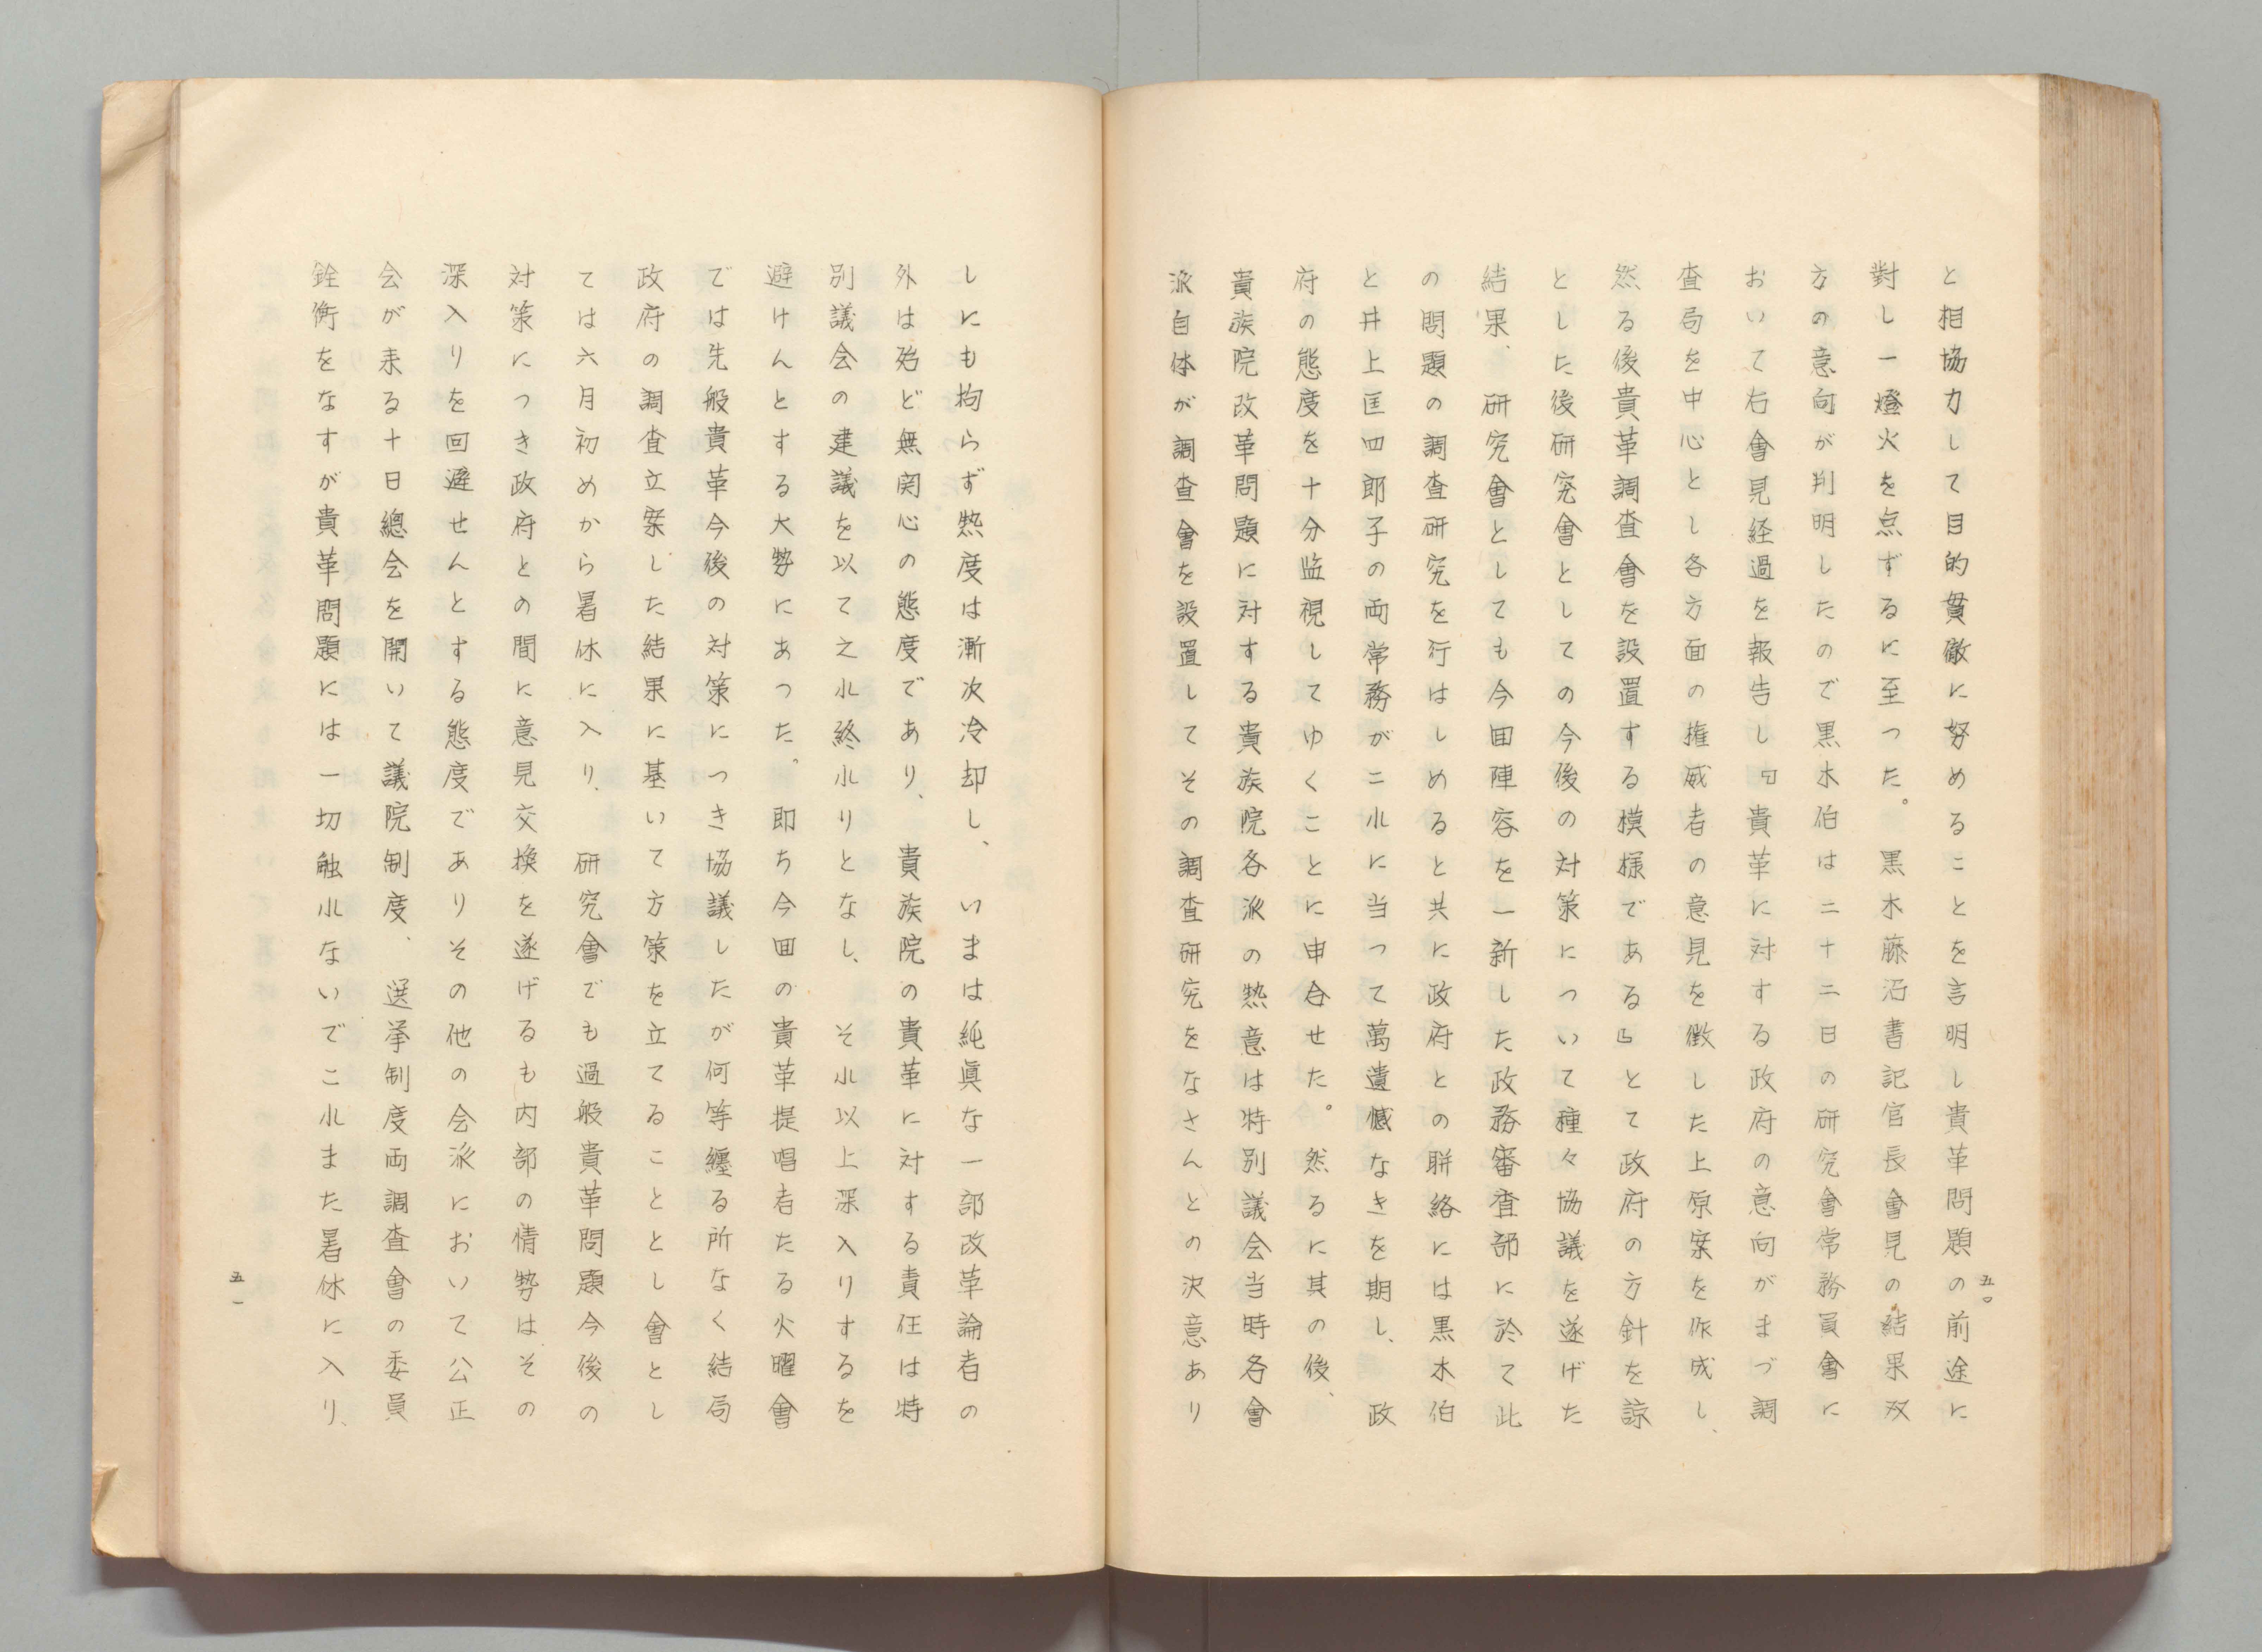 と相協力して目的貫徹に努めることを言明し貴革問題の前途に
對し一燈火を点ずるに至つた。黒木藤沼書記官長會見の結果双
方の意向が判明したので黒木伯は二十二日の研究會常務員會に
おいて右會見経過を報告し『貴革に対する政府の意向がまづ調
査局を中心とし各方面の権威者の意見を徴した上原案を作成し、
然る後貴革調査會を設置する模様である』とて政府の方針を諒
とした後研究會としての今後の対策について種々協議を遂げた
結果、研究會としても今回陣容を一新した政務審査部に於て此
の問題の調査研究を行はしめると共に政府との聯絡には黒木伯
と井上匡四郎子の両常務が二れに当つて萬遺憾なきを期し、政
府の態度を十分監視してゆくことに申合せた。然るに其の後、
貴族院改革問題に対する貴族院各派の熱意は特別議会当時各會
派自体が調査會を設置してその調査研究をなさんとの決意あり
五〇
しにも拘らず熱度は漸次冷却し、いまは純眞な一部改革論者の
外は殆ど無関心の態度であり、貴族院の貴革に対する責任は特
別議会の建議を以て之れ終れりとなし、それ以上深入りするを
避けんとする大勢にあつた。即ち今回の貴革提唱者たる火曜會
では先般貴革今後の対策につき協議したが何等纏る所なく結局
政府の調査立案した結果に基いて方策を立てることとし會とし
ては六月初めから暑休に入り、研究會でも過般貴革問題今後の
対策につき政府との間に意見交換を遂げるも内部の情勢はその
深入りを回避せんとする態度でありその他の会派において公正
会が来る十日總会を開いて議院制度、選挙制度両調査會の委員
銓衡をなすが貴革問題には一切触れないでこれまた暑休に入り、
五一